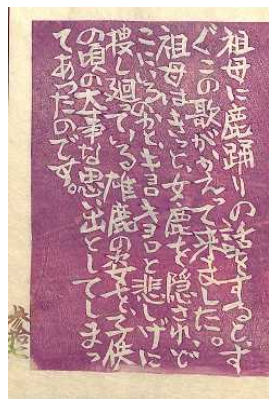 祖母に鹿踊りの話をするとす
ぐこの歌がかえって来ました。
祖母はきっと、女鹿を隠され、ど
こにいるのかと、キョロキョロと悲しげに
捜し廻っている雄鹿の姿を、子供
の頃の大事な思い出としてしまっ
てあったのです。